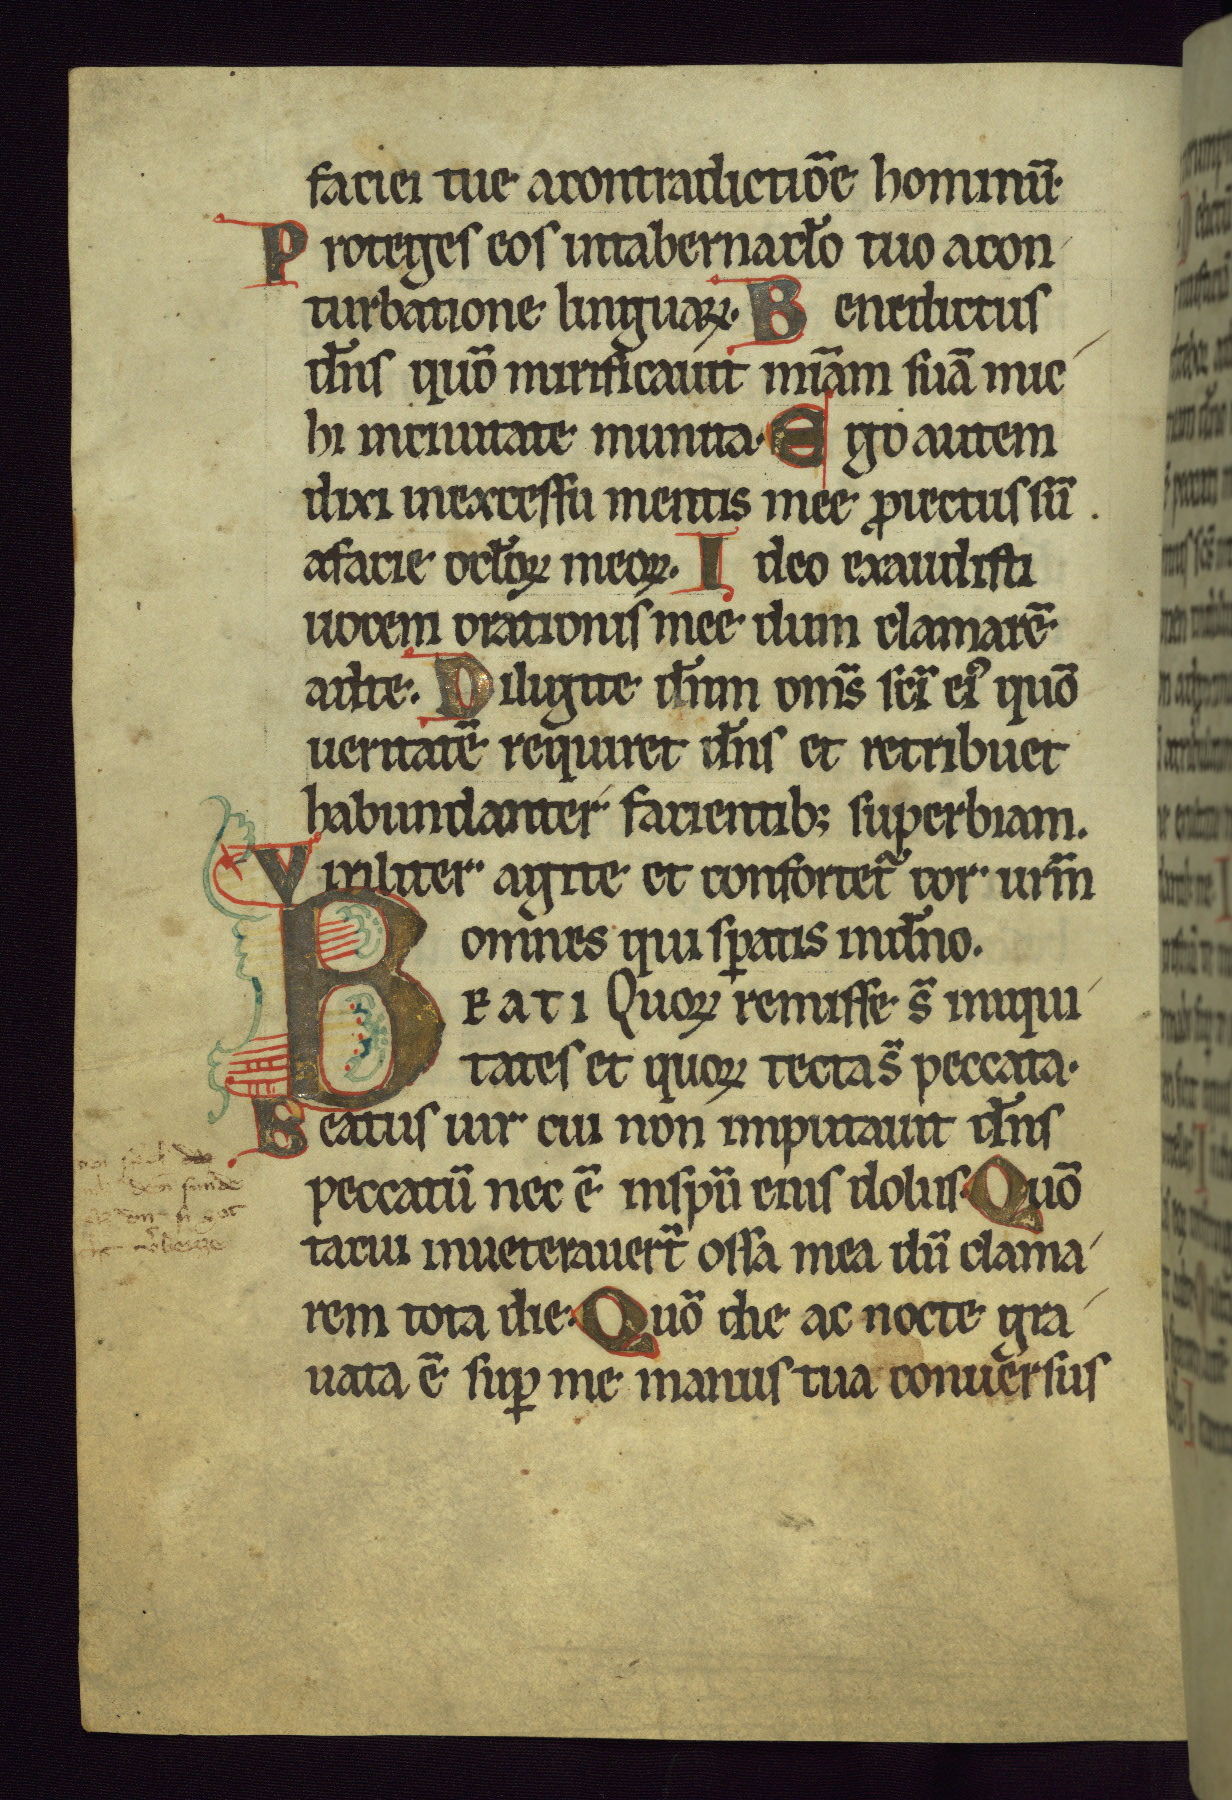 faciei tue acontradictiõe hominũ·
Proteges eos intabernacl̃o tuo acon
turbatione linguaꝝ· Benedictus
dñs quõ mirificauit mĩam suã mic
hi inciuitate munita· Ego autem
dixi inexcessu mentis mee ꝓiectus sũ
afacie ocl̃oꝝ meoꝝ. Ideo exaudisti
uocem orationis mee dum clamarẽ
adte. Diligite dñm om̃s sc̃i eiꝰ quõ
ueritatẽ requiret dñs et retribuet
habundanter facientib; superbiam.
Viriliter agite et confortet̃ cor ur̃m
omnes qui sꝑatis indño.
BEATI Quoꝝ remisse s̃ iniqui
tates et quoꝝ tecta s̃ peccata·
Beatus uir cui non imputauit dñs
peccatũ nec ẽ inspũ eius dolus· Quõ
tacui inueterauer̃t ossa mea dũ clama
rem tota die· Quõ die ac nocte gra
uata ẽ suꝑ me manus tua conuersus